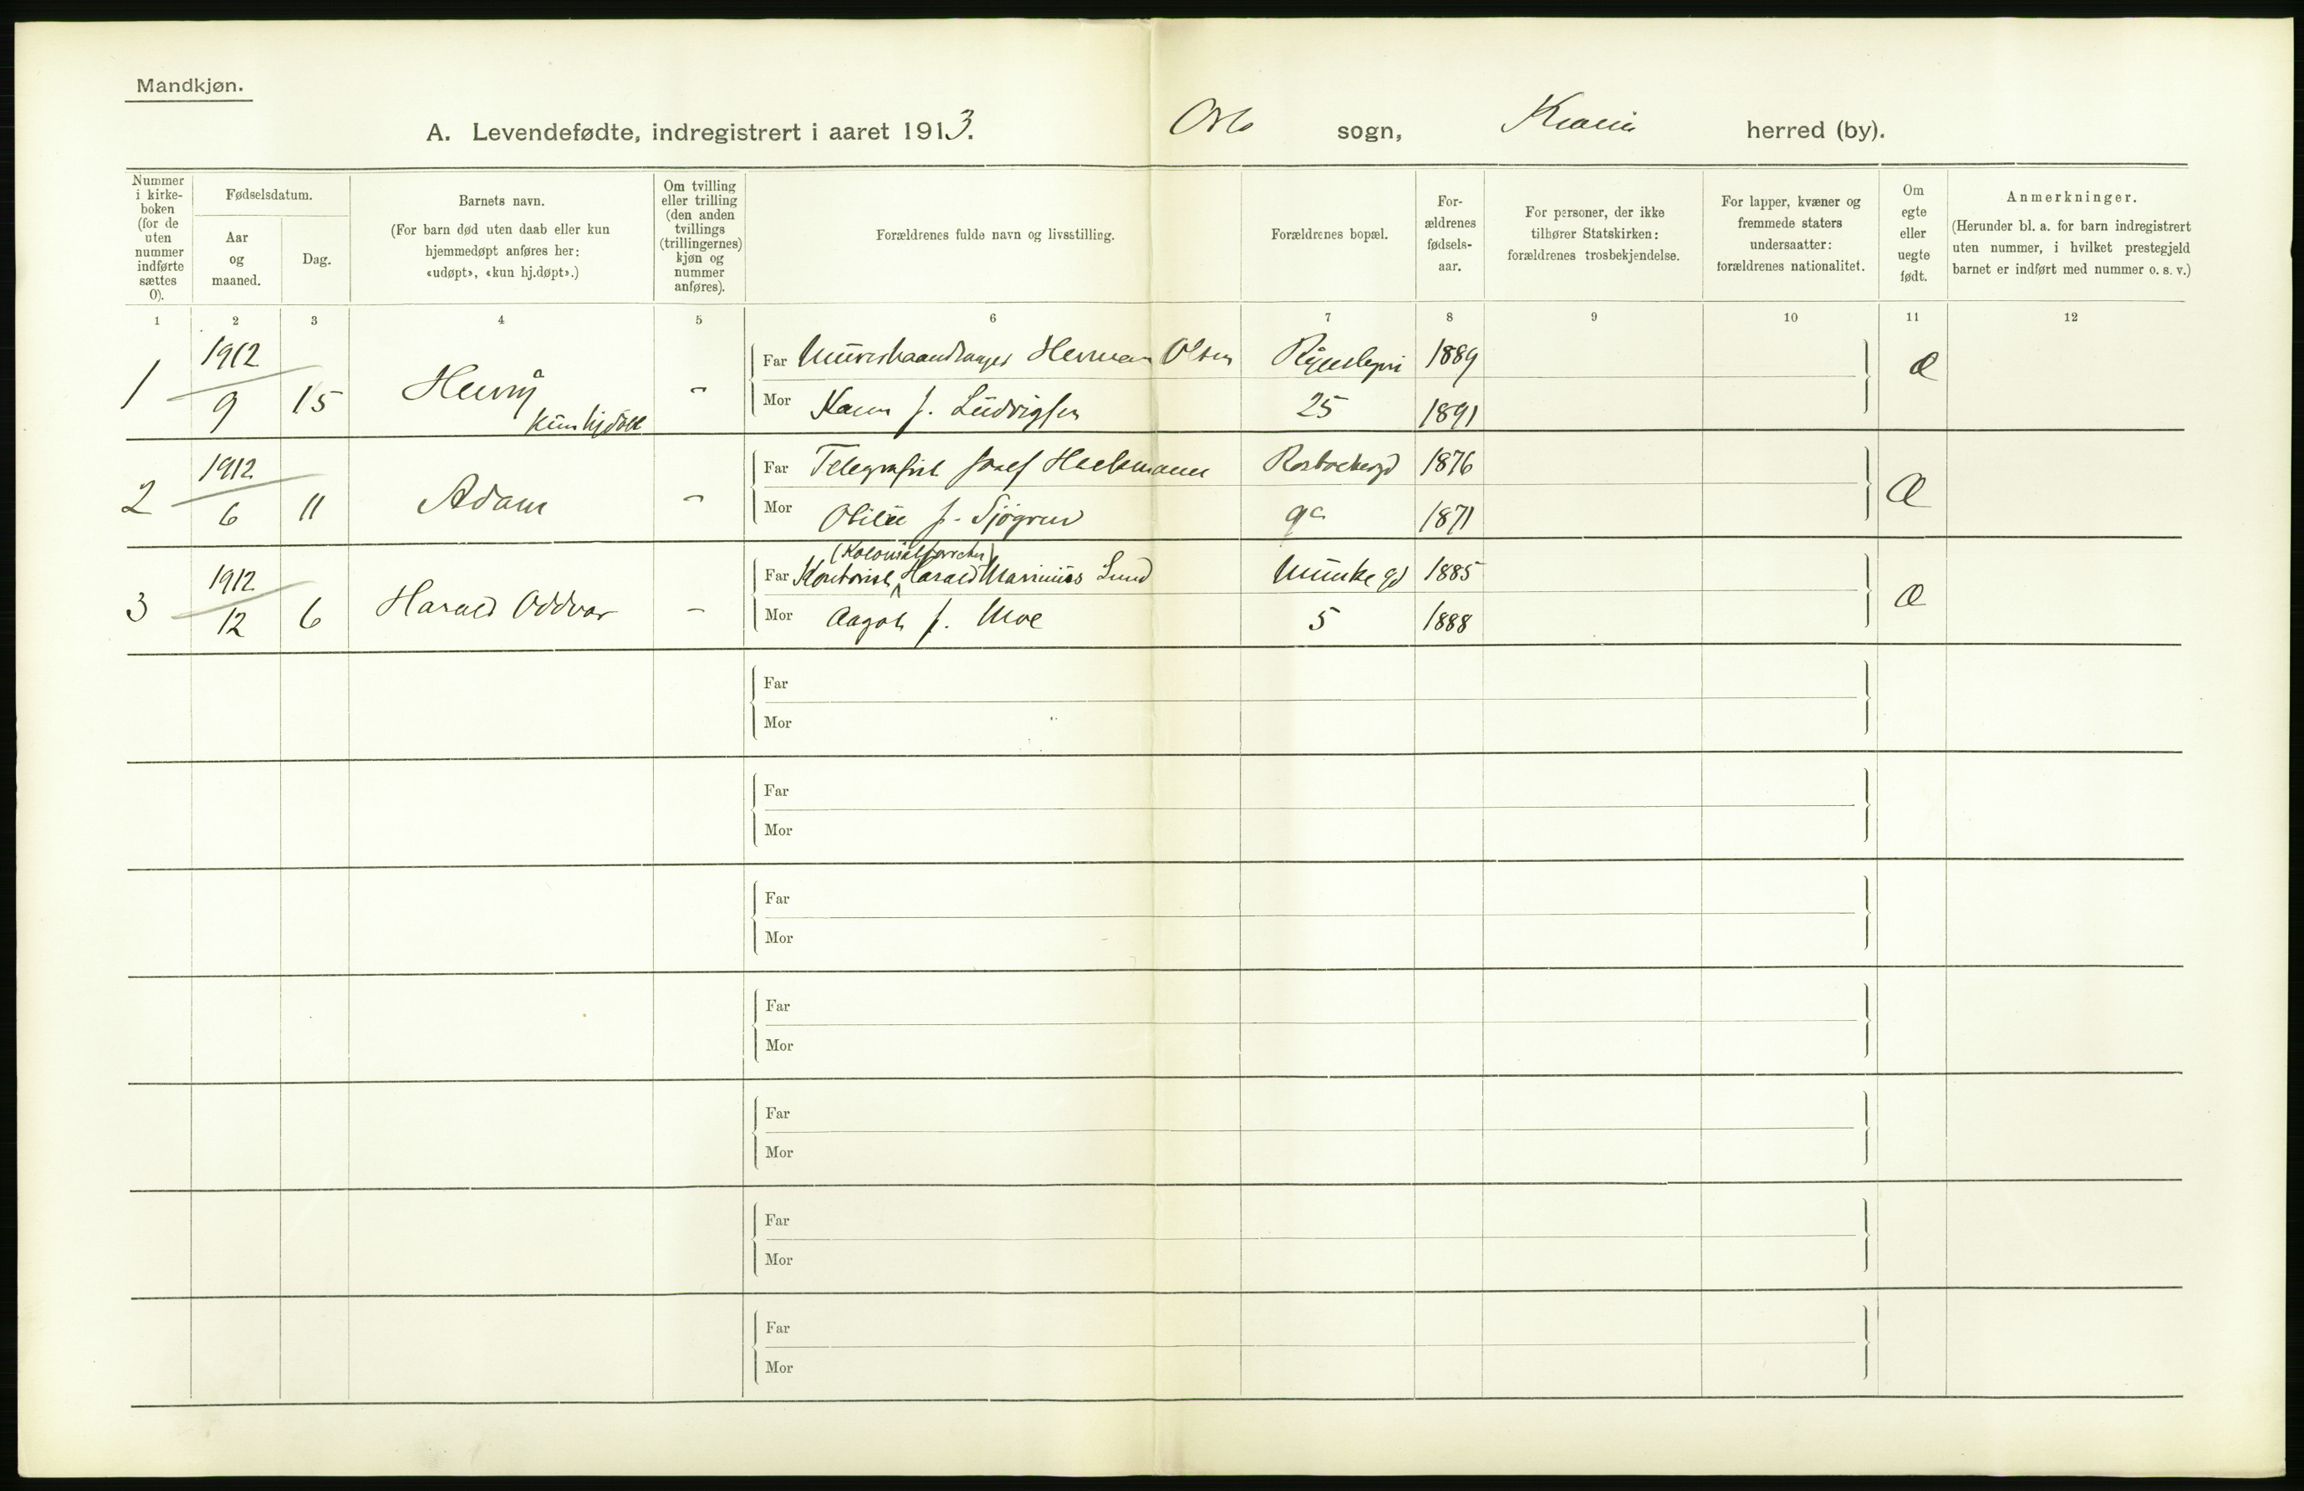 Mandkjøn.
A. Levendefødte, indregistrert i aaret 1913. Oslo sogn, Kra.nia herred (by).
Nummer i kirke-boken (for de uten nummer indførte sættes 0).
Fødselsdatum.
Aar og maaned.
Dag.
Barnets navn.
(For barn død uten daab eller kun hjemmedøpt anføres her: «udøpt», «kun hj.døpt».)
Om tvilling eller trilling (den anden tvillings (trillingernes) kjøn og nummer anføres).
Forældrenes fulde navn og livsstilling.
Forældrenes bopæl.
For-ældrenes fødsels-aar.
For personer, der ikke tilhører Statskirken: forældrenes trosbekjendelse.
For lapper, kvæner og fremmede staters undersaatter: forældrenes nationalitet.
Om egte eller uegte født.
Anmerkninger.
(Herunder bl. a. for barn indregistrert uten nummer, i hvilket prestegjeld barnet er indført med nummer o. s. v.)
1 2 3 4 5 6 7 8 9 10 11 12
1912 Far Murerhaandlanger Herman Olsen 1889
1 9 15 Henry - Æ
kun hjdøbt Mor Karen f. Ludvigsen 25 1891
1912 Far Telegrafist Josef Halsmann 1876
2 6 11 Adam - Æ
Mor Otilie f. Sjögren 9c 1871
(Kolonialforretn)
1912 Far Kontorist Harald Marinius Lund Munkegd 1885
3 12 6 Harald Oddvar - Æ
Mor Aagot f. Moe 5 1888
Far
Mor
Far
Mor
Far
Mor
Far
Mor
Far
Mor
Far
Mor
Far
Mor